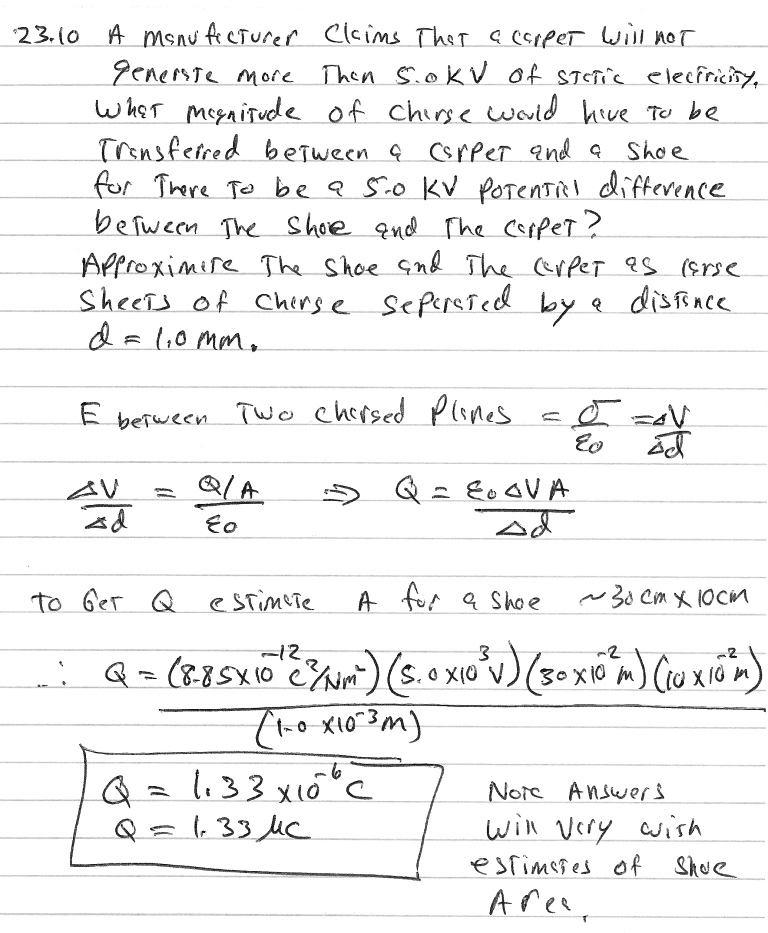 23.10 A manufacturer claims that a carpet will not
generate more than 5.0 kV of static electricity.
What magnitude of charge would have to be
transferred between a carpet and a shoe
for there to be a 5.0 kV potential difference
between the shoe and the carpet?
Approximate the shoe and the carpet as large
sheets of charge separated by a distance
d = 1.0 mm.
E between two charged planes = σ/ε₀ = ΔV/Δd
ΔV/Δd = Q/A / ε₀ ⇒ Q = ε₀ΔVA/Δd
To get Q estimate A for a shoe ~30 cm x 10cm
∴ Q = (8.85x10⁻¹²C²/Nm²)(5.0x10³V)(30x10⁻²m)(10x10⁻²m)
(1.0 x10⁻³m)
Q = 1.33 x10⁻⁶C
Q = 1.33 μC
Note Answers
will vary with
estimates of shoe
Area.